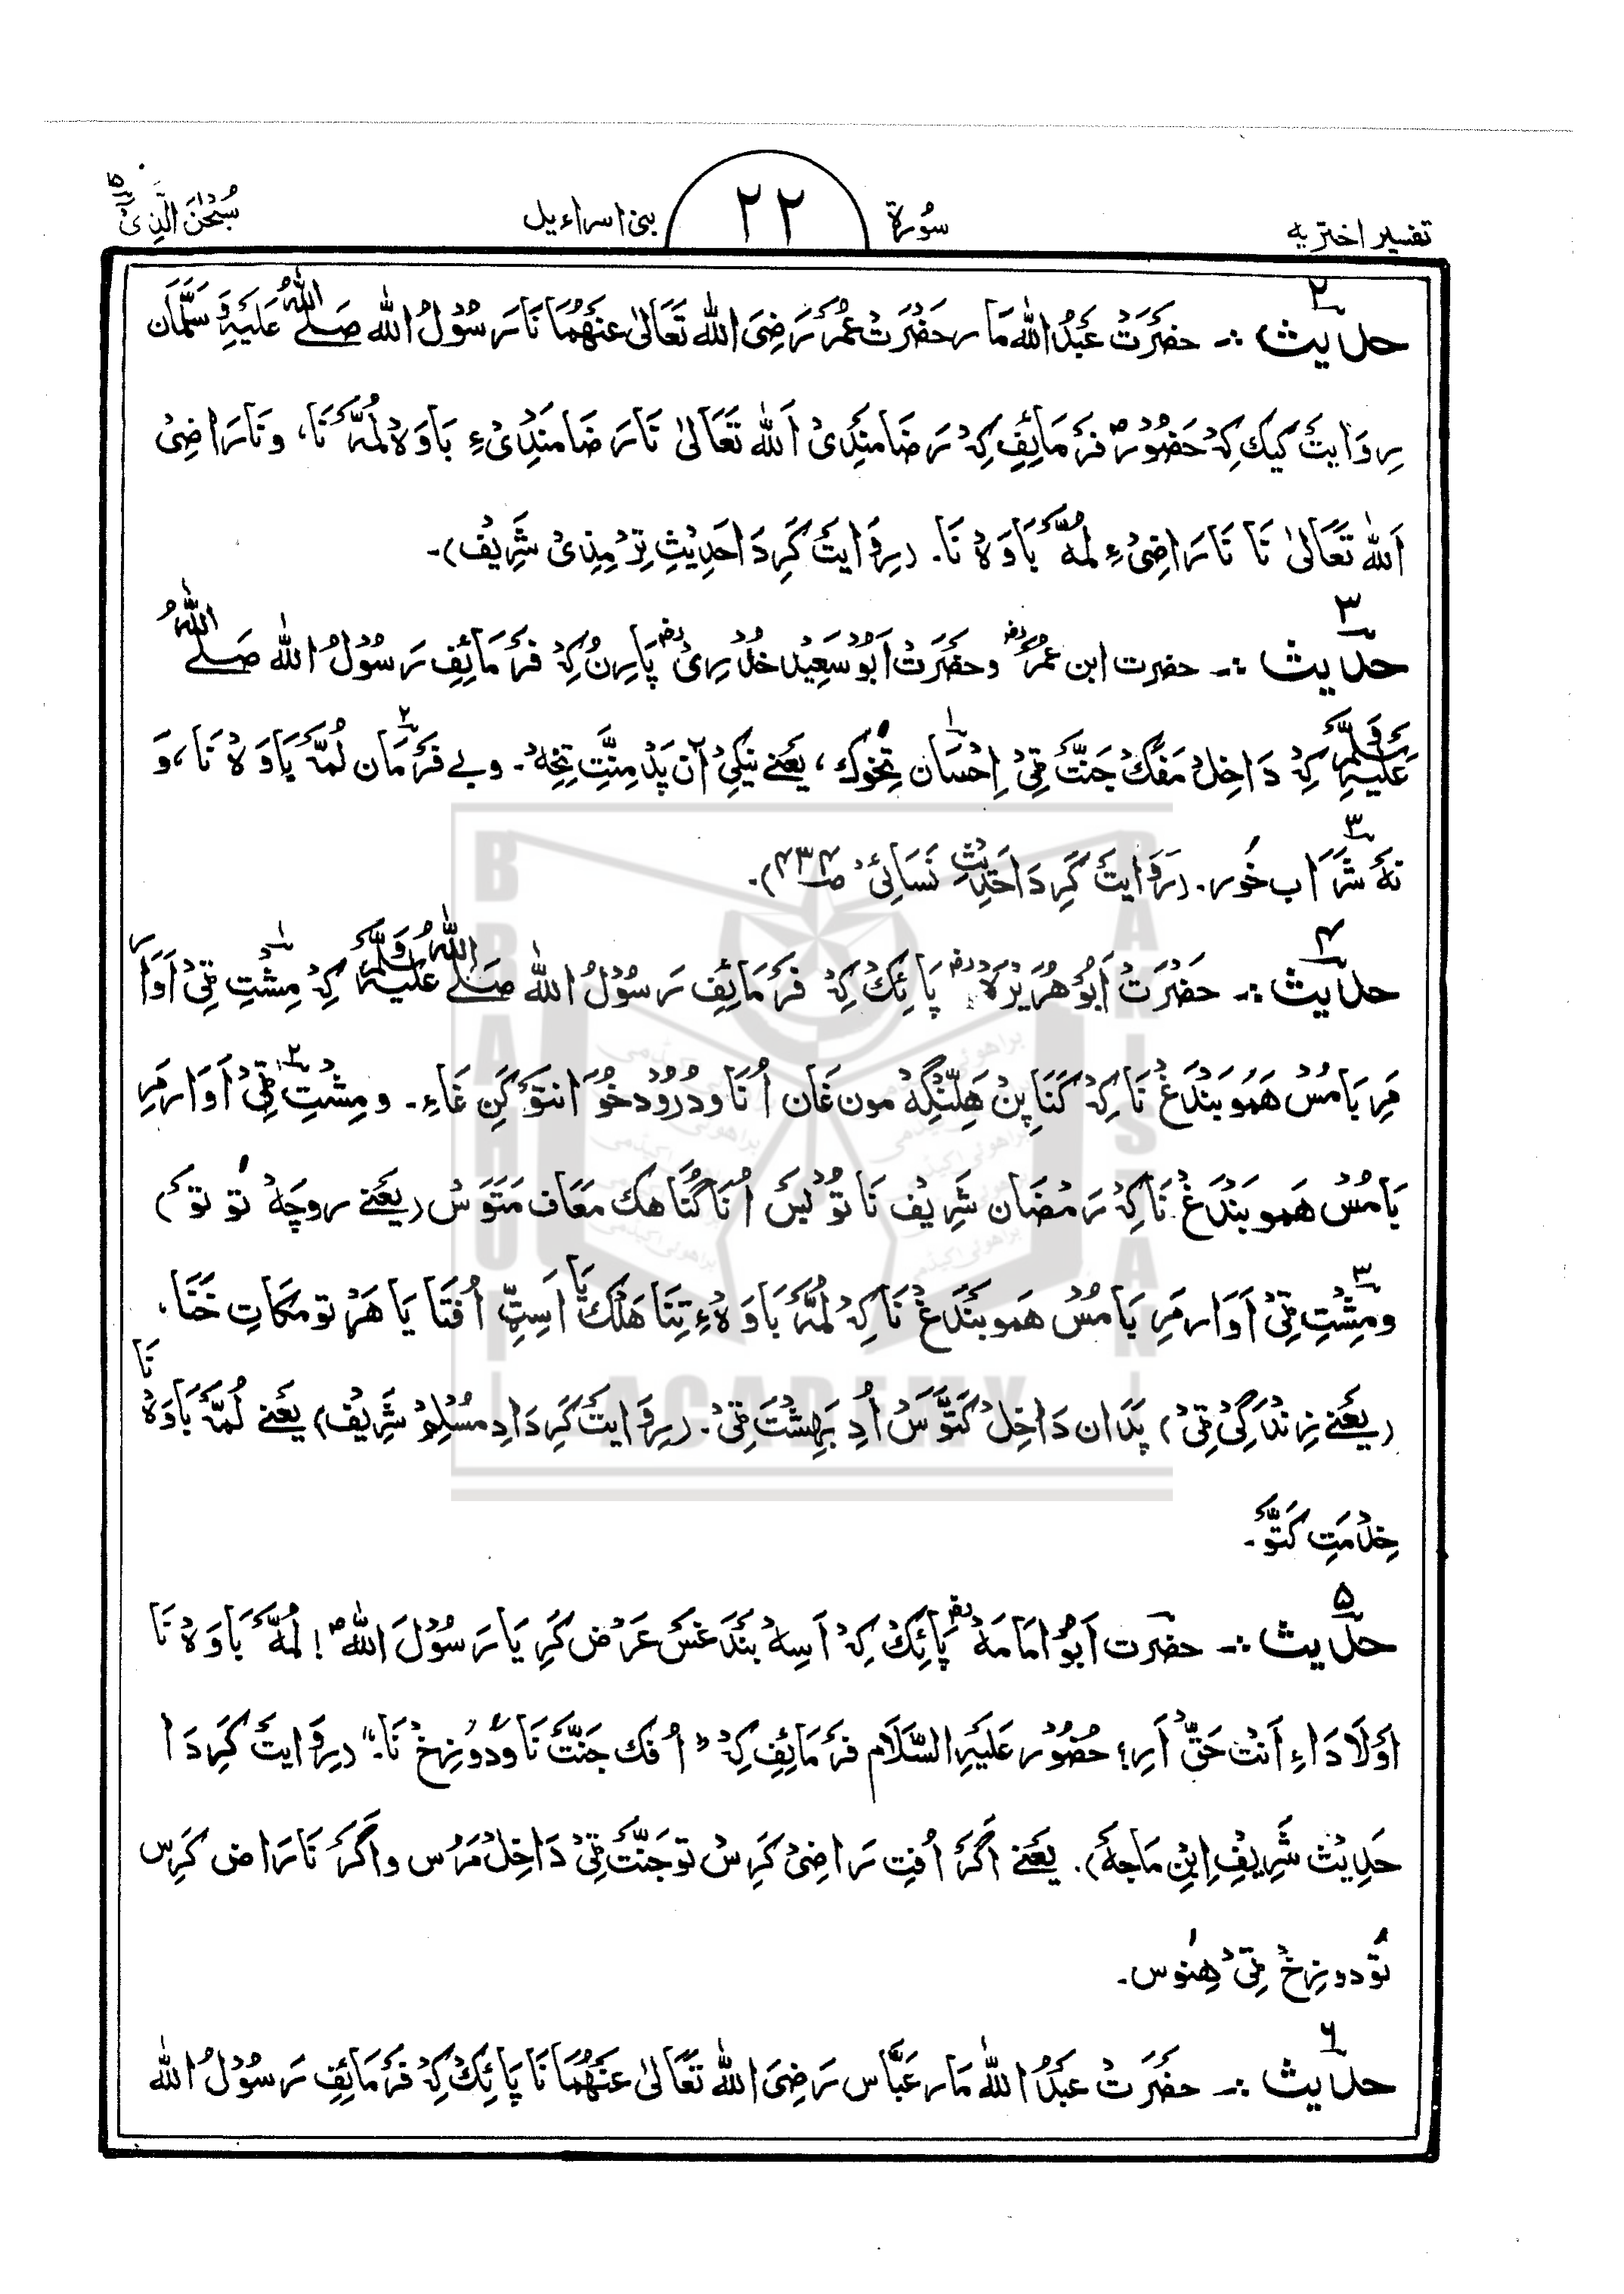 تفسیر اختریه سُورة ۲۲ بنی اسراءیل سُبْحٰنَ الَّذِیْ ۱۵
حدیث ۲ :ـ حضَرَتْ عَبْدُ اللّٰه مَار حَضْرَتْ عُمَرْ رَضِیَ اللّٰهُ تَعَالیٰ عَنْهُمَا نَا رَسُوْلُ اللّٰه صَلَّے اللّٰهُ عَلَیْهِ وَسَلَّمَان
رِوَایتْ کیک کِہْ حَضُوْرؐ فَرْمَائِفِ کِہْ رَضَامَنْدِیْ اَللّٰه تَعَالیٰ نَا رَضَامَنْدِیْءِ بَاوَہ لُمَّہ نَا، و نَارَاضِیْ
اَللّٰه تَعَالیٰ نَا نَارَاضِیْءِ لُمَّہ بَاوَہْ نَا۔ (رِوَایتْ کَرِ دَا حَدِیْثِ تِرْمِذِیْ شَرِیْف)۔
حدیث ۳ :ـ حضرت ابن عمرؓ و حضَرَتْ اَبُوْ سَعِیْد خُدْرِیْؓ پَارِنْ کِہْ فَرْمَائِفِ رَسُوْلُ اللّٰه صَلَّے اللّٰهُ
عَلَیْهِ وَسَلَّمْ کِہْ دَاخِلْ مَفَکْ جَنَّتْ ٹِیْ ۱ اِحْسَان تِخُوک، یَعْنے نیکِیْ آن پَدْ مِنَّتِ تِخِہْ۔ و ۲ بے فَرْمَان لُمَّہ بَاوَہْ نَا، وَ
نَہ ۳ شَرَاب خُور۔ (رِوَایتْ کَرِ دَا حَدِیْثِ نَسَائِیْ صـ۴۳۴)۔
حدیث ۴ :ـ حَضْرَتْ اَبُوْ هُرَیْرَہْؓ پَائِکْ کِہْ فَرْمَائِفِ رَسُوْلُ اللّٰه صَلَّے اللّٰهُ عَلَیْهِ وَسَلَّمْ کِہْ ۱ مِشْتِ ٹِیْ اَوَار
مَرِ بَامُسْ هَمُو بَنْدَغْ نَا کِہْ کَنَا پِنْ هَلِّنْگِہْ مون غَان اُنَا و دُرُوْد خُوَانتَو کَنِ غَاءِ۔ و ۲ مِشْتِ ٹِیْ اَوَار مَرِ
بَامُسْ هَمو بَنْدَغْ نَا کِہْ رَمْضَان شَرِیْف نَا تُوْ بَسْ اُنَا گُنَاهک مَعَاف مَتَوَسْ (یعْنے روچَہْ تُو تو)
و ۳ مِشْتِ ٹِیْ اَوَار مَرِ بَامُسْ هَمو بَنْدَغْ نَا کِہْ لُمَّہ بَاوَہْءِ تِنَا هَلْکْ یَا اَسِٹِّ اُفتَا یَا هَرْ تو مَکَاتِ خَنَا،
(یعْنے زِنْدَگِیْ ٹِیْ) پَدَان دَاخِلْ کَتَوَّسْ اُدِ بَهِشْتَ ٹِیْ۔ (رِوَایتْ کَرِ دَادِ مُسْلِمْ شَرِیْف) یَعْنے لُمَّہ بَاوَہْ نَا
خِدْمَتِ کَتَوَّ۔
حدیث ۵ :ـ حضرت اَبُوْ اُمَامَہْؓ پَائِکْ کِہْ اَسِہْ بَنْدَغَسْ عَرْض کَرِ یَا رَسُوْلَ اللّٰهؐ! لُمَّہ بَاوَہْ نَا
اَوْلَادَاءِ اَنْتْ حَقْ اَرِ؟ حُضُوْر عَلَیْهِ السَّلَام فَرْمَائِفِ کِہْ ”اُفک جَنَّتْ نَا وَدُوْزخْ نَا۔“ (رِوَایتْ کَرِ دَا
حَدِیْث شَرِیْفِ اِبْنِ مَاجَہ)۔ یَعْنے اَگَرْ اُفتِ رَاضِیْ کَرِسْ تو جَنَّتْ ٹِیْ دَاخِلْ مَرُس وَاگَرْ نَارَاض کَرِس
تُو دوزِخْ ٹِیْ هِنُوس۔
حدیث ۶ :ـ حضَرَتْ عَبْدُ اللّٰه مَار عَبَّاس رَضِیَ اللّٰهُ تَعَالیٰ عَنْهُمَا نَا پَائِکْ کِہْ فَرْمَائِفِ رَسُوْلُ اللّٰه
BRAHUI
ACADEMY
PAKISTAN